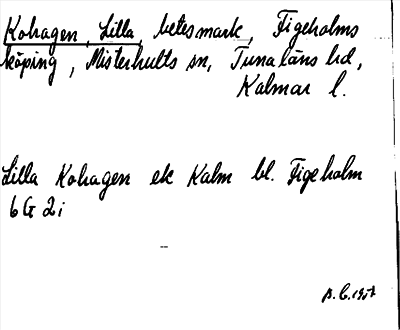 Kohagen, Lilla, betesmark, Figeholms
köping, Misterhults sn, Tunaläns hd,
Kalmar l.
Lilla Kohagen ek Kalm bl. Figeholm
6G 2i